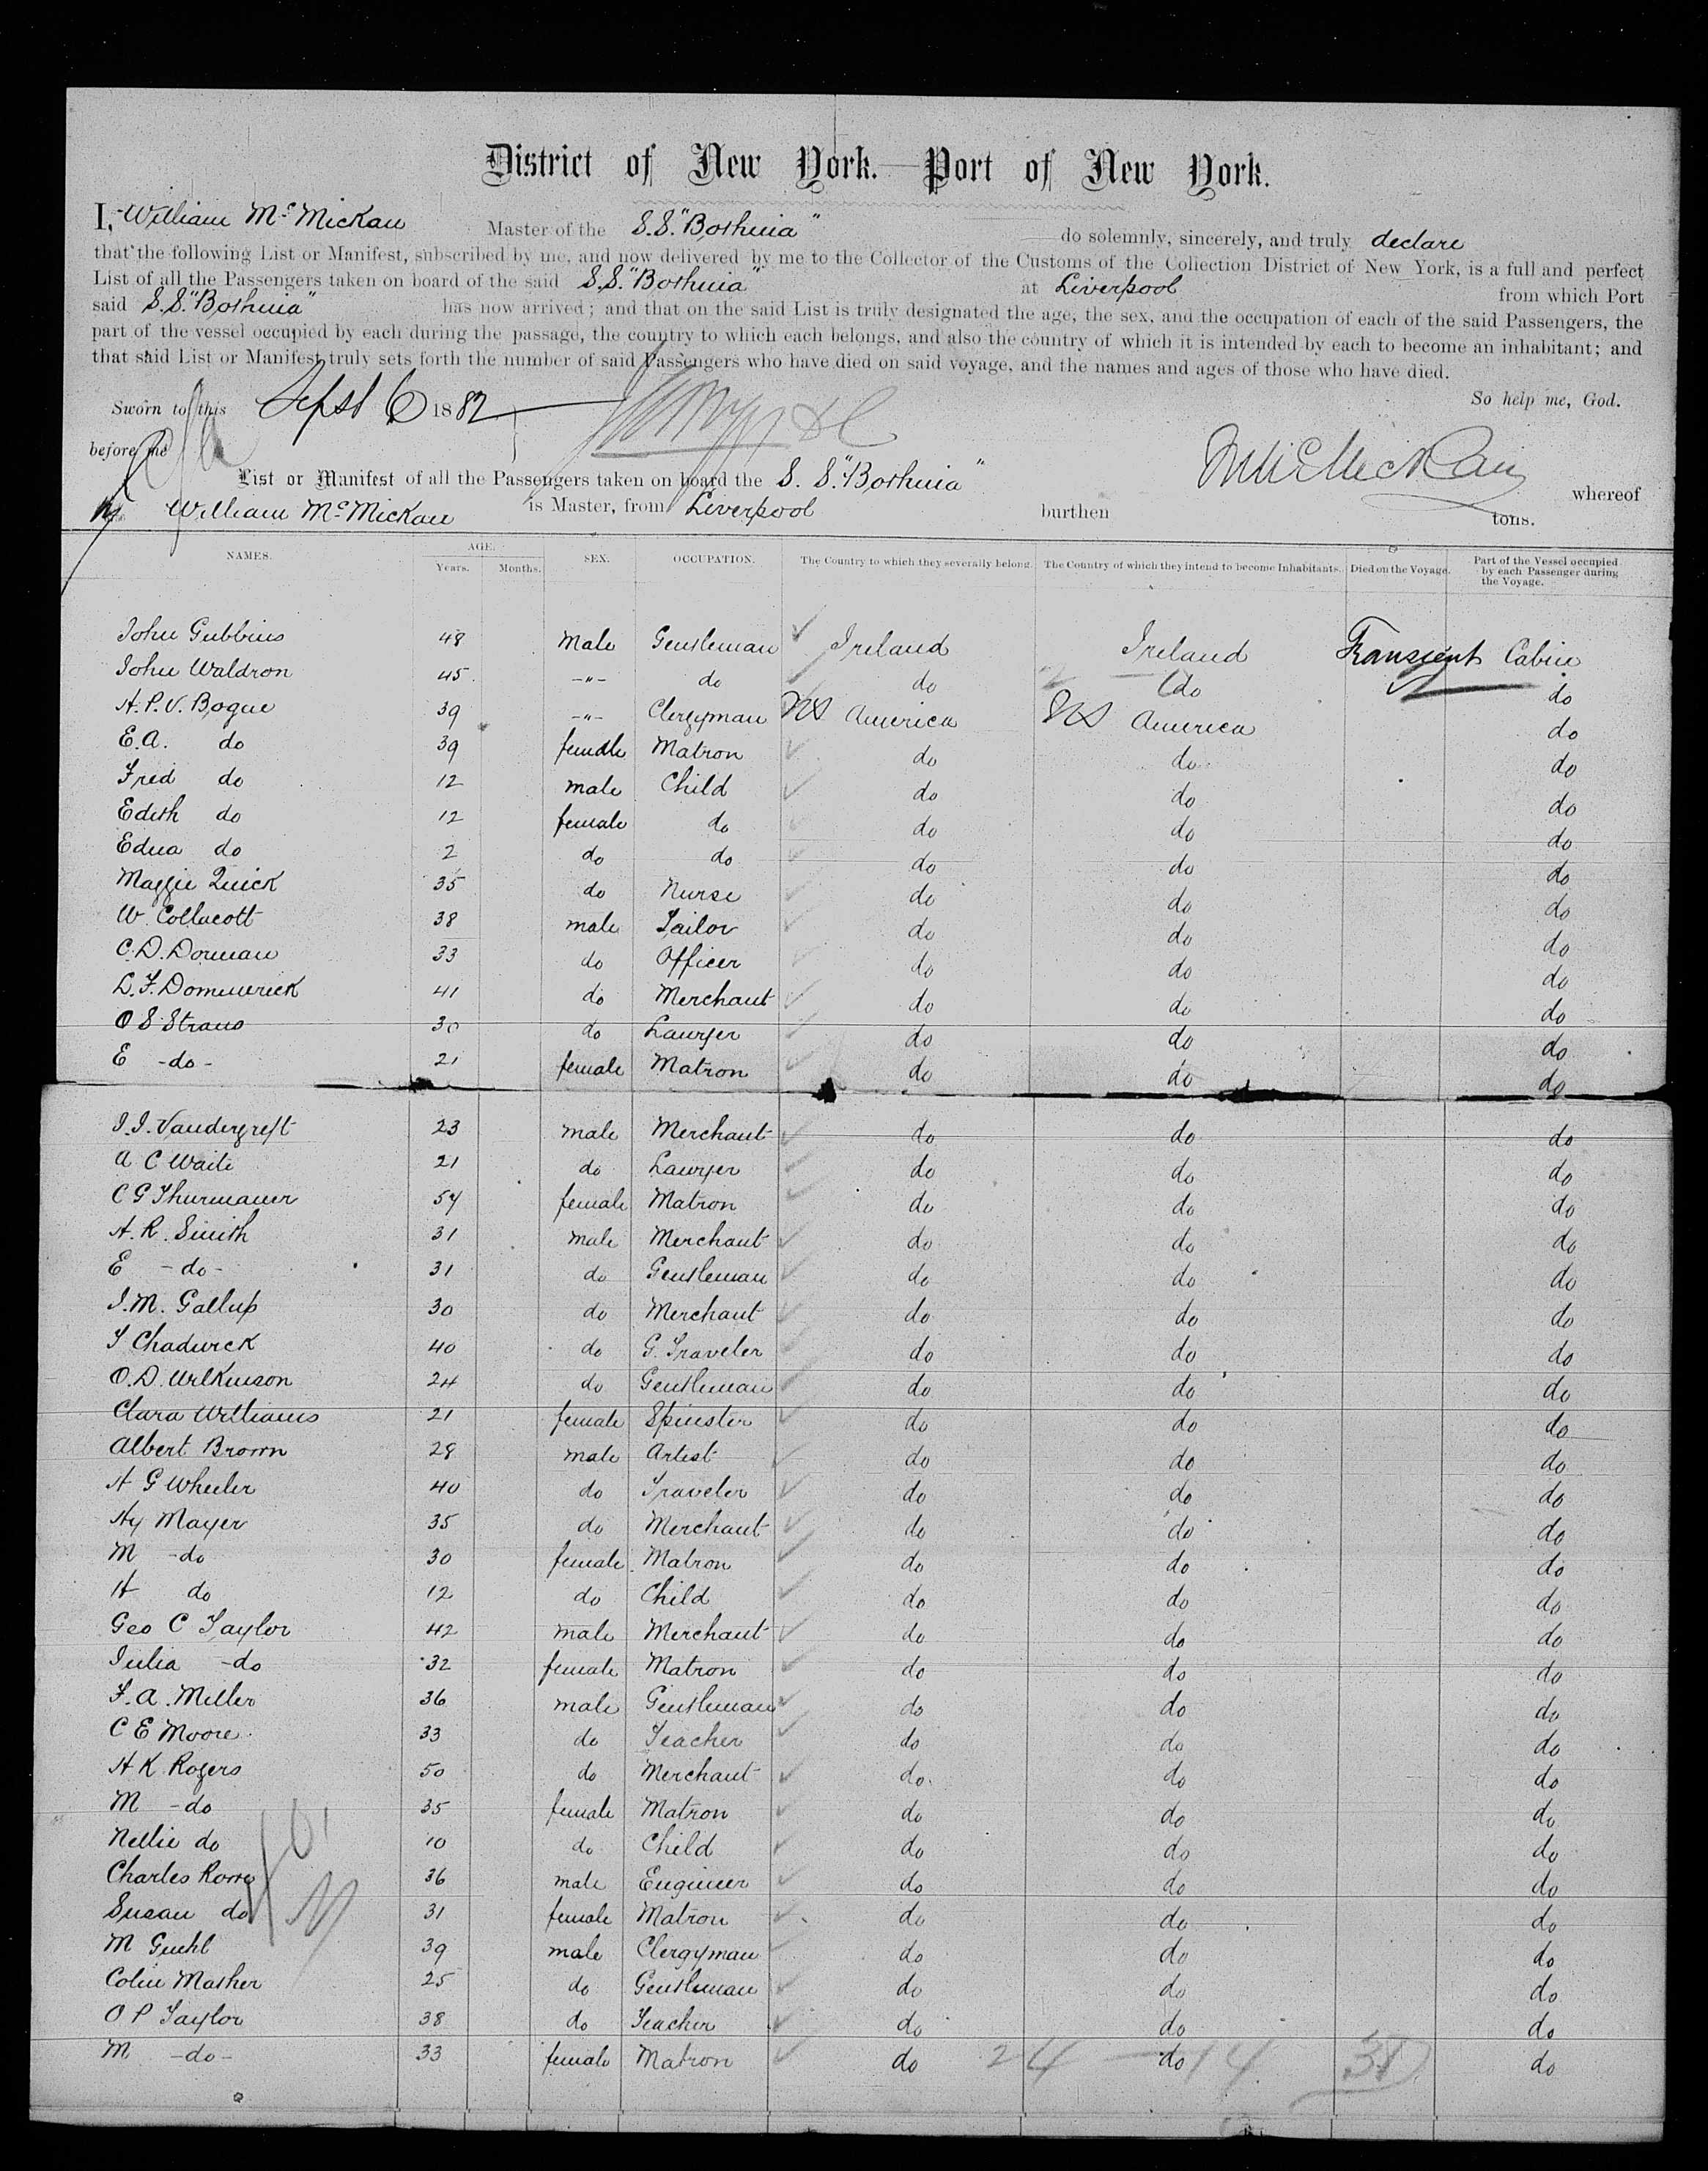 District of New York. — Port of New York.
I, William McMickan Master of the S.S. "Bothnia" do solemnly, sincerely, and truly declare
that the following List or Manifest, subscribed by me, and now delivered by me to the Collector of the Customs of the Collection District of New York, is a full and perfect
List of all the Passengers taken on board of the said S.S. "Bothnia" at Liverpool from which Port
said S.S. "Bothnia" has now arrived; and that on the said List is truly designated the age, the sex, and the occupation of each of the said Passengers, the
part of the vessel occupied by each during the passage, the country to which each belongs, and also the country of which it is intended by each to become an inhabitant; and
that said List or Manifest truly sets forth the number of said Passengers who have died on said voyage, and the names and ages of those who have died.
Sworn to this Sept 6 1882 So help me, God.
before me W McMickan
List or Manifest of all the Passengers taken on board the S. S. "Bothnia" whereof
William McMickan is Master, from Liverpool burthen tons.
NAMES. AGE. Years. Months. SEX. OCCUPATION. The Country to which they severally belong. The Country of which they intend to become Inhabitants. Died on the Voyage. Part of the Vessel occupied by each Passenger during the Voyage.
John Gubbins 48 Male Gentleman Ireland Ireland Transient Cabin
John Waldron 45 -"- do do do do
H. P. V. Bogue 39 -"- Clergyman US America US America do
E. A. do 39 female Matron do do do
Fred do 12 male Child do do do
Edith do 12 female do do do do
Edna do 2 do do do do do
Maggie Quick 35 do Nurse do do do
W. Collacott 38 male Tailor do do do
C. D. Dorman 33 do Officer do do do
L. F. Dommerick 41 do Merchant do do do
O S Straus 30 do Lawyer do do do
E -do- 21 female Matron do do do
J. J. Vandergrift 23 male Merchant do do do
A C Waite 21 do Lawyer do do do
C G Thurmauer 54 female Matron do do do
H. R. Smith 31 male Merchant do do do
E -do- 31 do Gentleman do do do
J. M. Gallup 30 do Merchant do do do
T Chadwick 40 do G. Traveler do do do
O. D. Wilkinson 24 do Gentleman do do do
Clara Williams 21 female Spinster do do do
Albert Brown 28 male Artist do do do
H G Wheeler 40 do Traveler do do do
Hy Mayer 35 do Merchant do do do
M -do 30 female Matron do do do
H do 12 do Child do do do
Geo C Taylor 42 male Merchant do do do
Julia -do 32 female Matron do do do
F. A. Miller 36 male Gentleman do do do
C E Moore 33 do Teacher do do do
H K Rogers 50 do Merchant do do do
M -do 35 female Matron do do do
Nellie do 10 do Child do do do
Charles Rowe 36 male Engineer do do do
Susan do 31 female Matron do do do
M Guhl 39 male Clergyman do do do
Colin Mather 25 do Gentleman do do do
O P Taylor 38 do Teacher do do do
M -do- 33 female Matron do 24 do 14 38 do